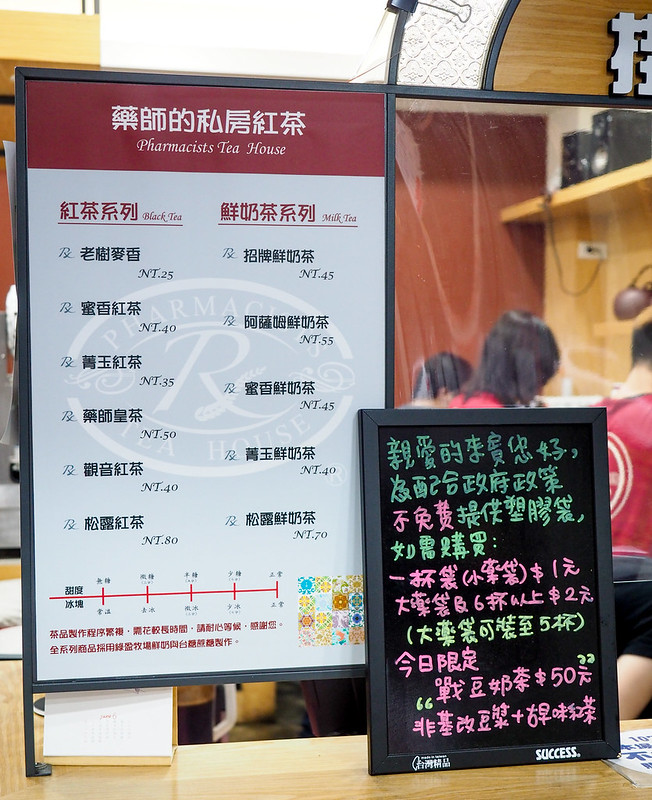 藥師的私房紅茶
Pharmacists Tea House
紅茶系列 Black Tea
老樹麥香
NT.25
蜜香紅茶
NT.40
菁玉紅茶
NT.35
藥師皇茶
NT.50
觀音紅茶
NT.40
松露紅茶
NT.80
鮮奶茶系列 Milk Tea
招牌鮮奶茶
NT.45
阿薩姆鮮奶茶
NT.55
蜜香鮮奶茶
NT.45
菁玉鮮奶茶
NT.40
松露鮮奶茶
NT.70
PHARMACISTS
TEA HOUSE
無糖 微糖 半糖 少糖 正常
甜度
冰塊
常溫 去冰 微冰 少冰 正常
茶品製作程序繁複，需花較長時間，請耐心等候，感謝您。
全系列商品採用綠盈牧場鮮奶與台糖蔗糖製作。
親愛的來賓您好，
為配合政府政策
不免費提供塑膠袋，
如需購買：
一杯袋(小藥袋)$1元
大藥袋及6杯以上$2元
(大藥袋可裝至5杯)
今日限定
戰豆奶茶$50元
非基改豆漿+古早味紅茶
made in taiwan
台灣精品
SUCCESS.